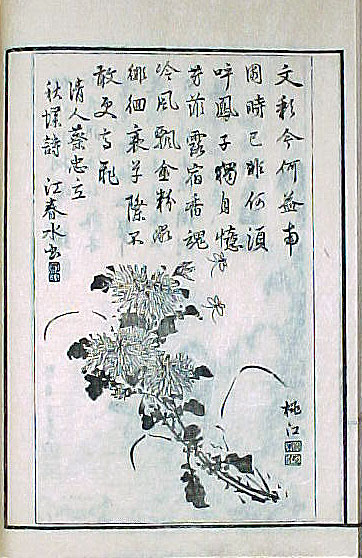 文彩今何益南
園時已非何須
呼鳳子獨自憶
芳菲露宿香魂
冷風飄金粉微
徘徊衰草際不
敢更高飛
清人蔡忠立
秋蝶詩 江春水書
桃江